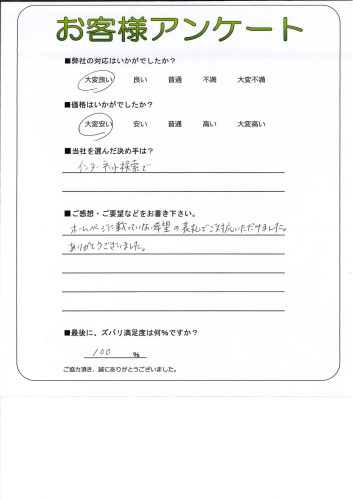 お客様アンケート
■弊社の対応はいかがでしたか?
大変良い 良い 普通 不満 大変不満
■価格はいかがでしたか?
大変安い 安い 普通 高い 大変高い
■当社を選んだ決め手は?
インターネット検索で
■ご感想・ご要望などをお書き下さい。
ホームページに載っていない希望の表札までご対応いただけました。
ありがとうございました。
■最後に、ズバリ満足度は何%ですか?
100 %
ご協力頂き、誠にありがとうございました。